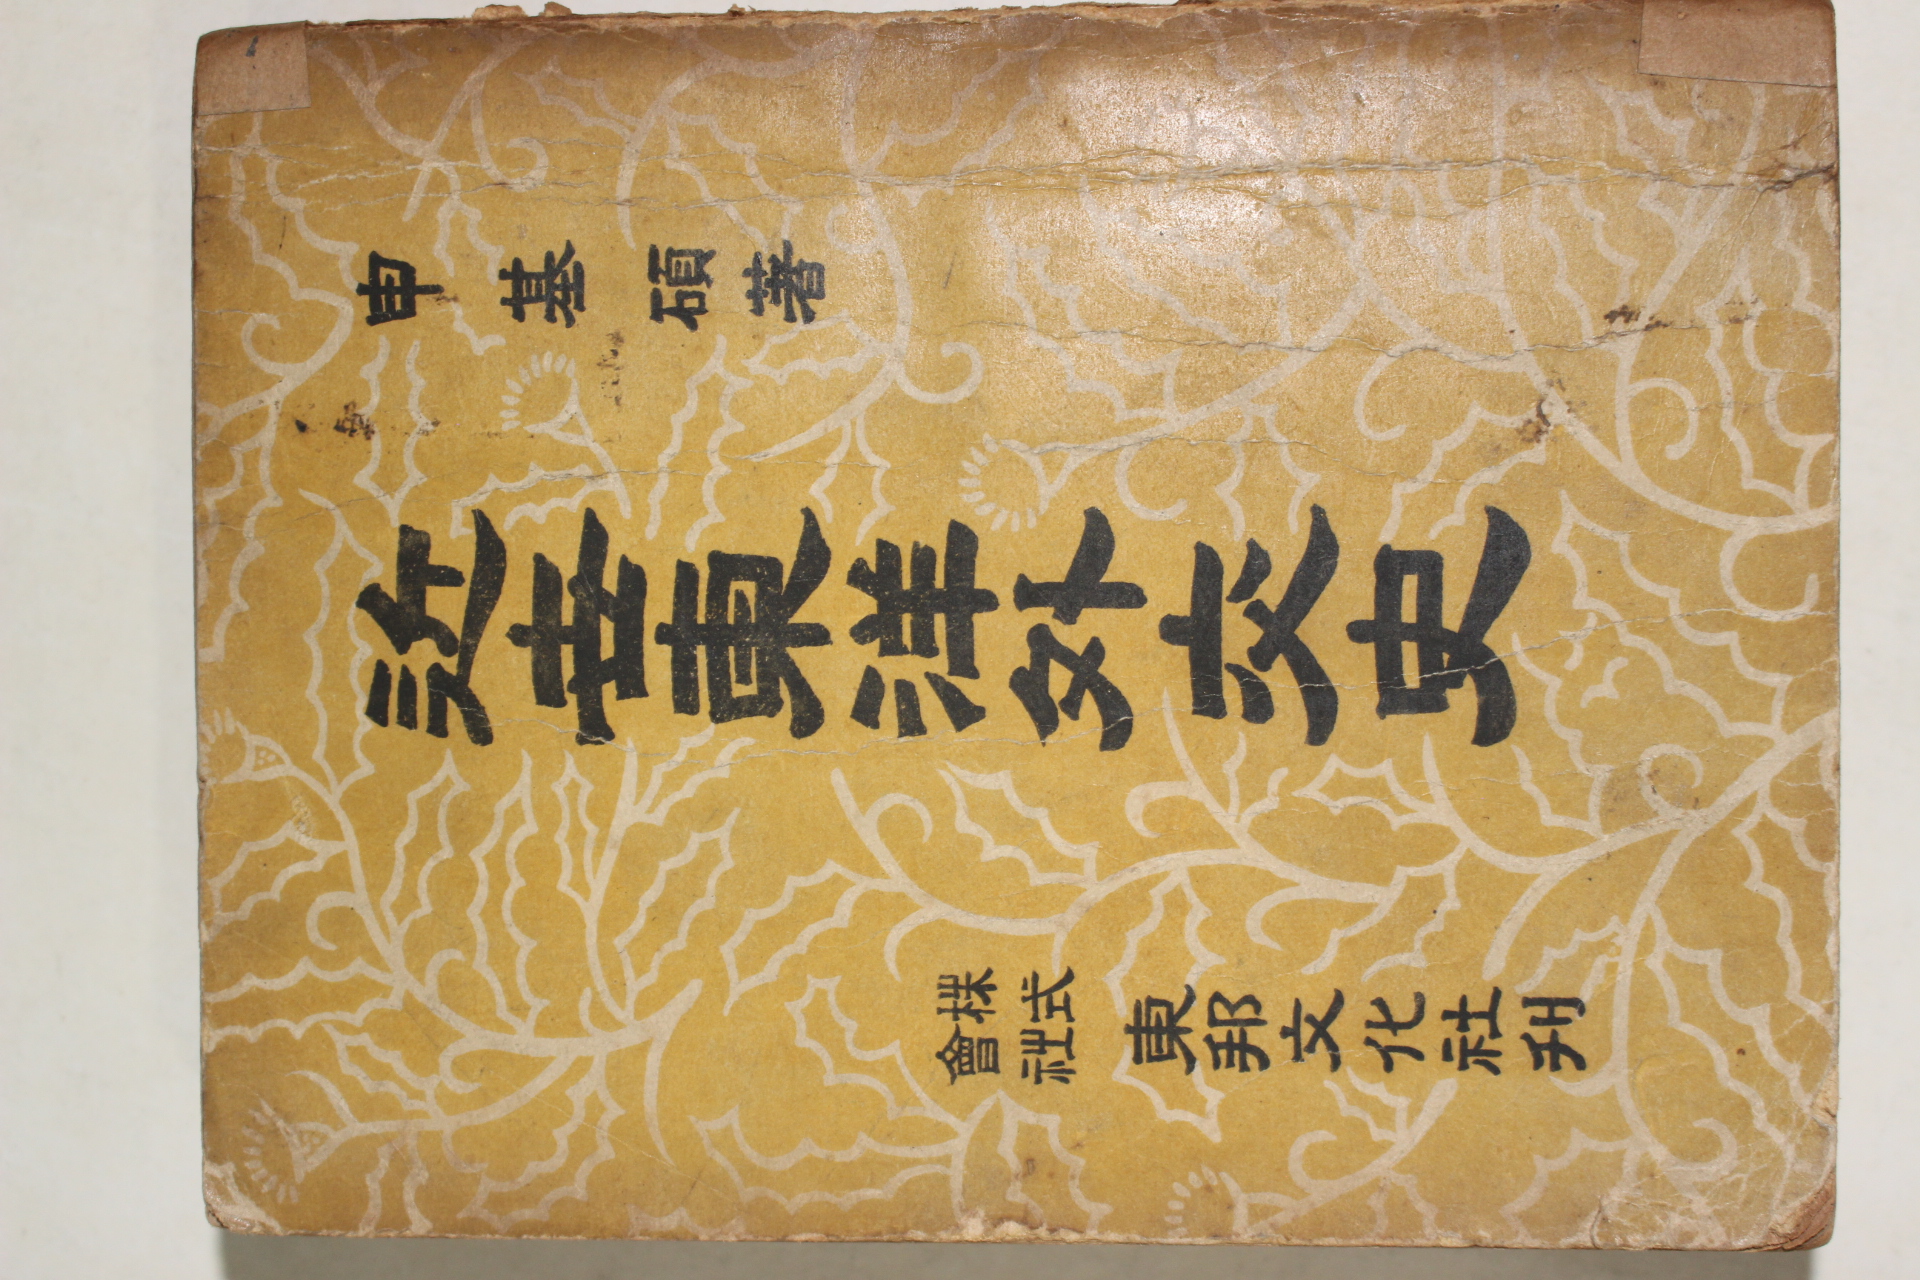 申基碩著
近世東洋外交史
株式會社 東邦文化社刊